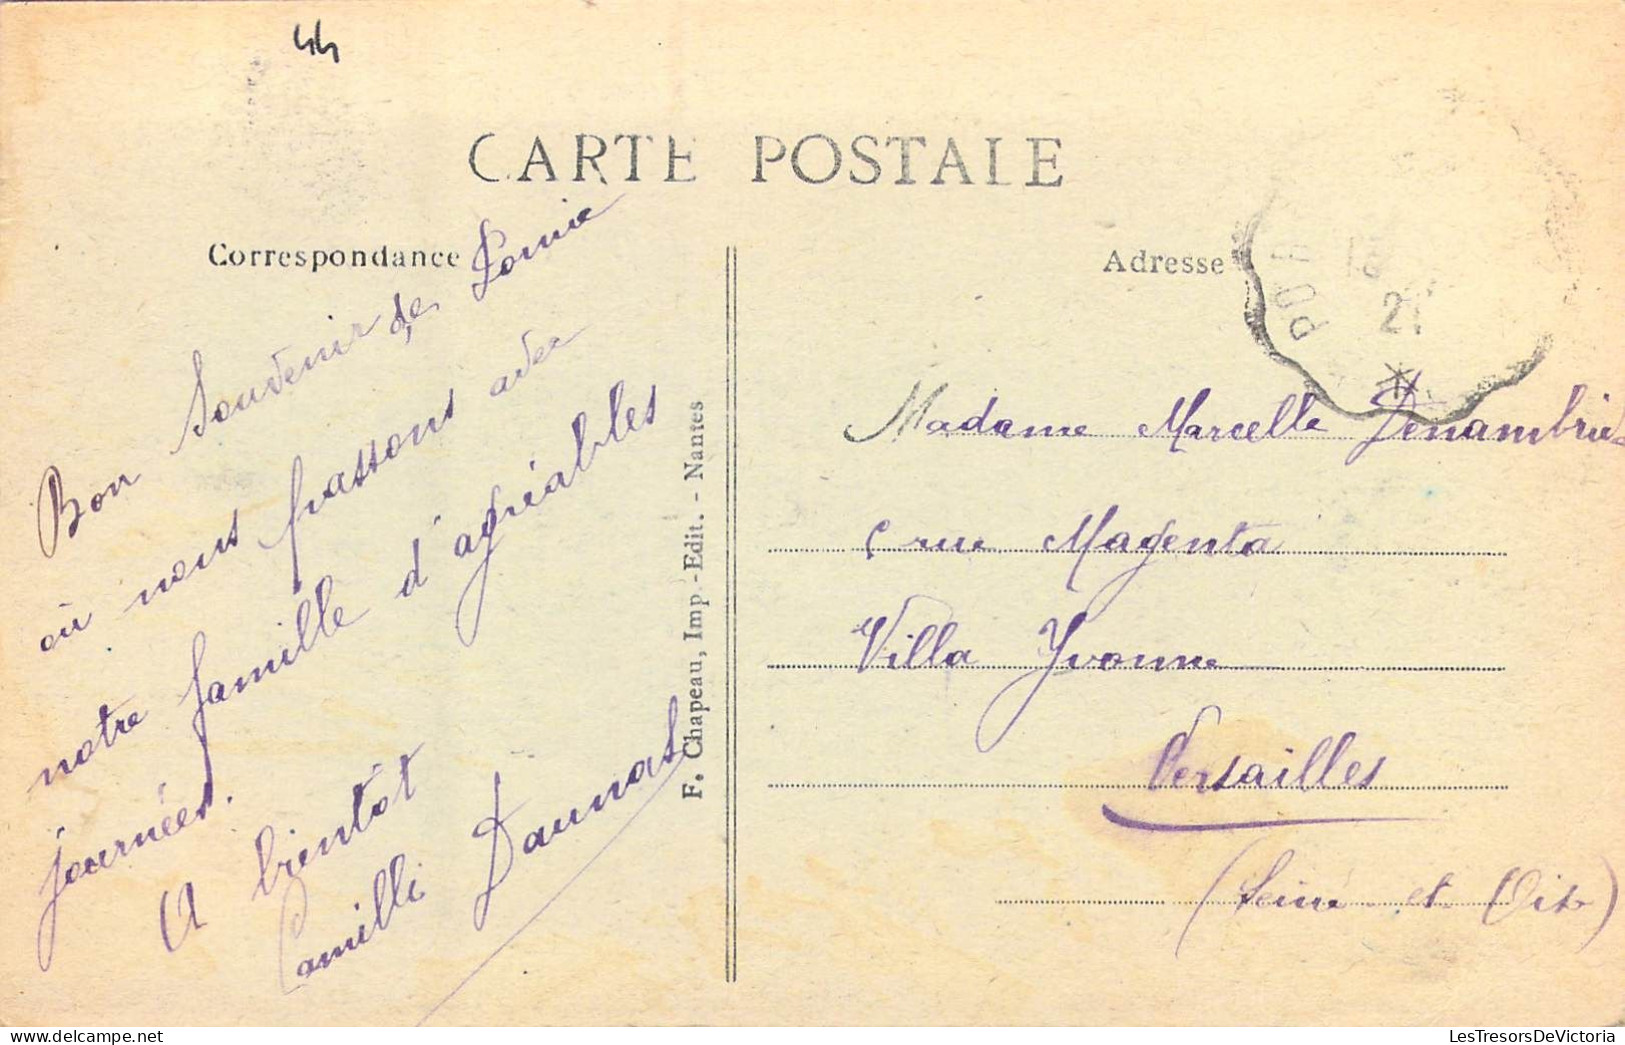 44
CARTE POSTALE
Correspondance
Bon Souvenir de Pornic
où nous passons avec
notre famille d'agréables
journées.
A bientôt
Camille Daunas
F. Chapeau, Imp.-Edit. - Nantes
Adresse
21
Madame Marcelle
rue Magenta
Villa Yvonne
Versailles
(Seine et Oise)
LesTresorsDeVictoria.com